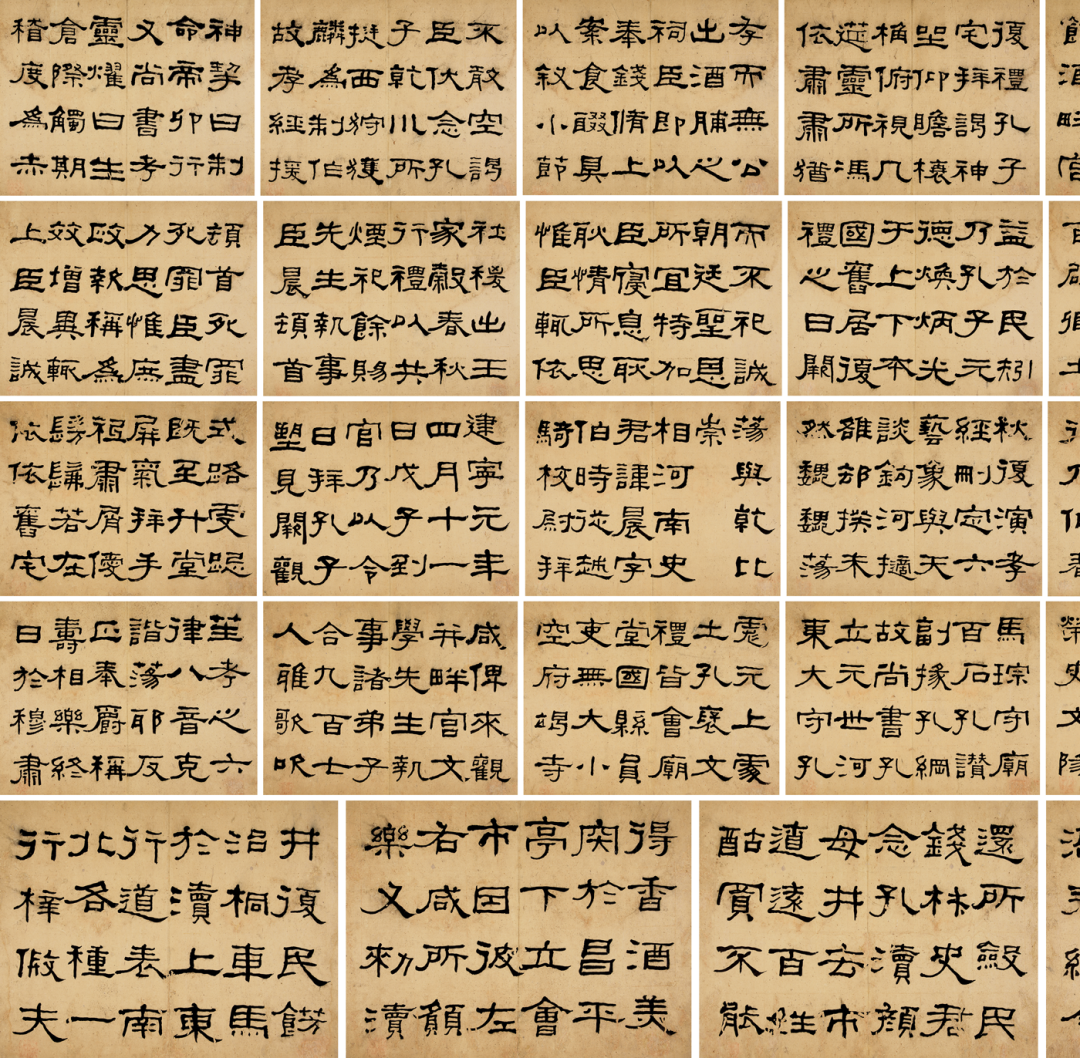 神挈曰制
命帝卯行
又尚書考
靈燿曰生
倉際觸期
稽度為赤
不敢空謁
臣伏念孔
子乾川所
挺西狩獲
麟為制作
故孝經援
孝而無公
出酒脯之
祠臣即以
奉錢脩上
案食醊具
以叙小節
復禮孔子
宅拜謁神
坐仰瞻榱
桷俯視几
筵靈所馮
依肅肅猶
頓首死罪
死罪臣盡
力思惟庶
政報稱為
效增異輒
上臣晨誠
社稷出王
家穀春秋
行禮以共
煙祀餘賜
先生執事
臣晨頓首
而不祀誠
朝廷聖恩
所宜特加
臣寑息耿
耿情所思
惟臣輒依
益於民矧
乃孔子元
德煥炳光
于上下本
國舊居復
禮之日闕
式路虔跽
既至升堂
屏氣拜手
祗肅屑僾
髣髴若在
依依舊宅
建寧元年
四月十一
日戊子到
官乃以令
日拜孔子
望見闕觀
蕩與乾比
崇
相河南史
君諱晨字
伯時從越
騎校尉拜
秋復演孝
經刪定六
藝象與天
談鉤河擿
雒却揆未
然魏魏蕩
笙考之六
律八音克
諧蕩邪反
正奉爵稱
壽相樂終
日於穆肅
咸俾來觀
并畔官文
學先生執
事諸弟子
合九百七
人雅歌吹
處元上處
士孔褒文
禮皆會廟
堂國縣員
吏無大小
空府竭寺
馬琮守廟
百石孔讃
副掾孔綱
故尚書孔
立元世河
東大守孔
井復民餝
治桐車馬
於瀆上東
行道表南
北各種一
行梓假夫
得香酒美
肉於昌平
亭下立會
市因彼左
右咸所願
樂又勑瀆
還所斂民
錢材史君
念孔瀆顏
母井去市
遼遠百姓
酤買不能